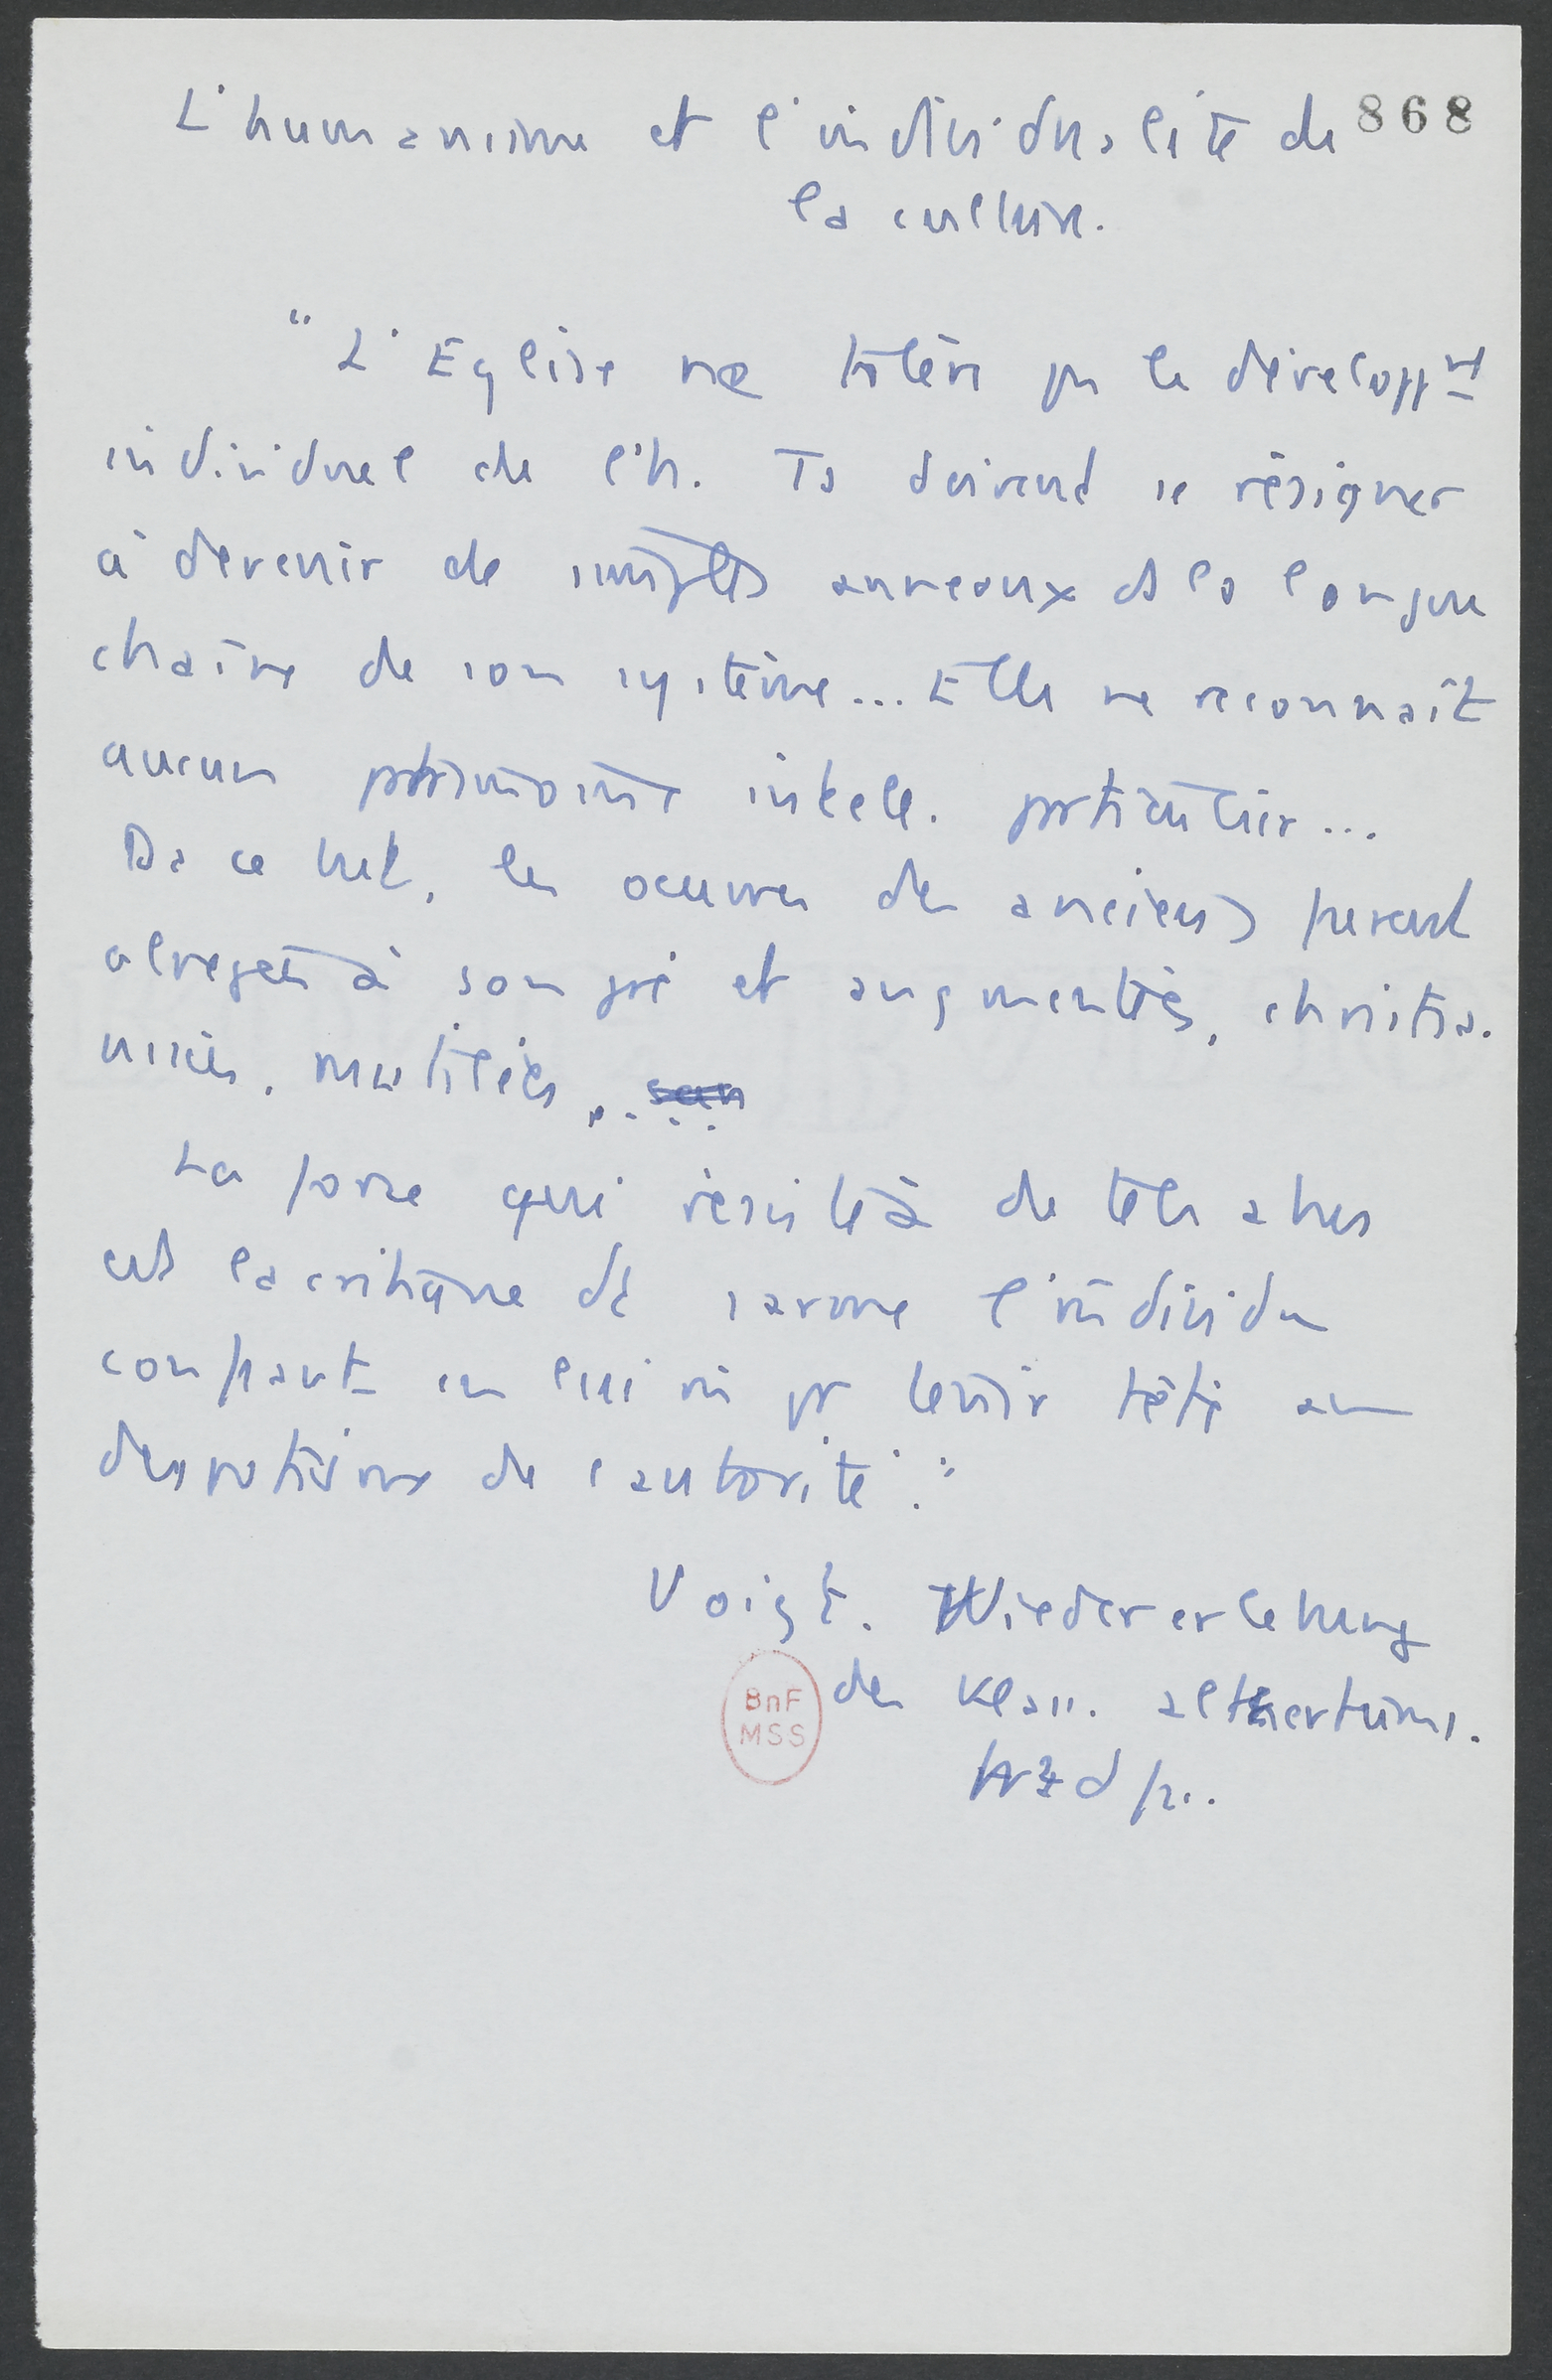 L'humanisme et l'individualité de 868
la culture.
"L'Eglise ne tolère pas le developpmt
individuel de l'h. Ts doivent se résigner
à devenir de simples anneaux ds la longue
chaîne de son système... Elle ne reconnaît
aucun patrimoine intell. particulier...
Ds ce but, les oeuvres des anciens furent
abregées à son gré et augmentées, christia-
nisées, mutilées...
La force qui résista à de tels abus
est la critique dt s'arme l'individu
confiant en lui mê pr tenir tête au
despotisme de l'autorité."
Voigt. Wiedererlebung
des klass. altherthums.
BnF
MSS